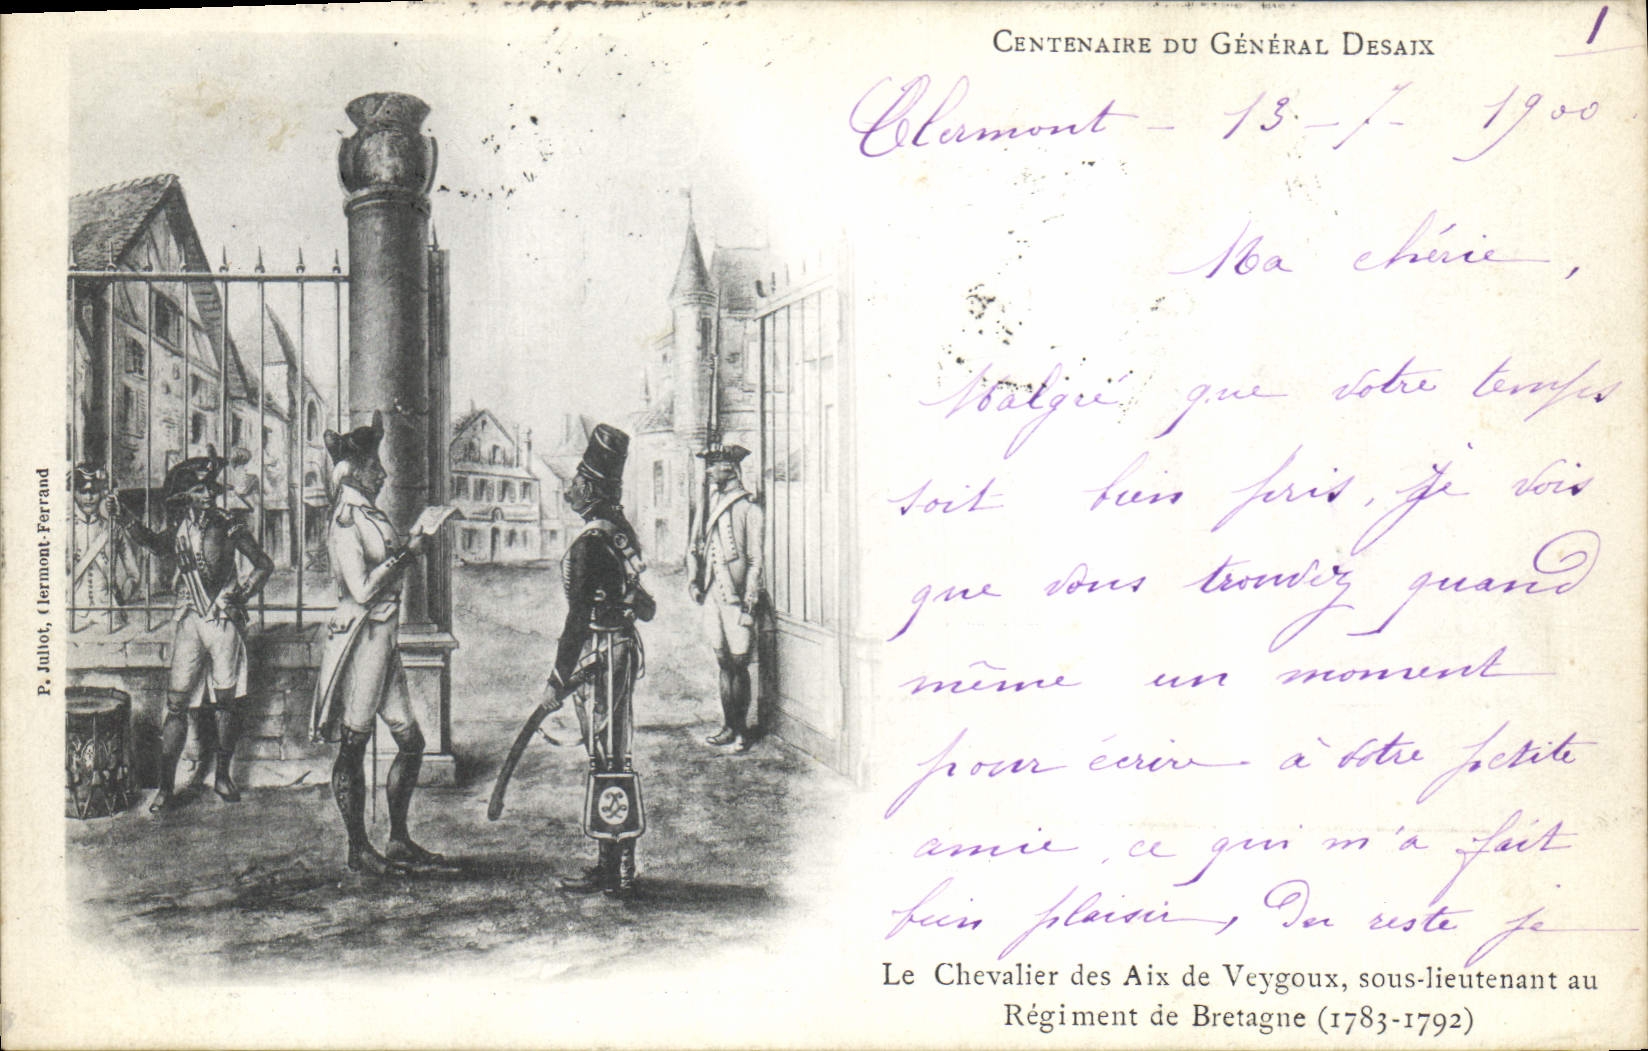 CENTENAIRE DU GÉNÉRAL DESAIX
1
Clermont - 13 - 7 - 1900
Ma chérie,
Malgré que votre temps
soit bien pris, je vois
que vous trouvez quand
même un moment
pour écrire à votre petite
amie, ce qui m'a fait
bien plaisir, Du reste je
Le Chevalier des Aix de Veygoux, sous-lieutenant au
Régiment de Bretagne (1783-1792)
P. Juliot, Clermont-Ferrand